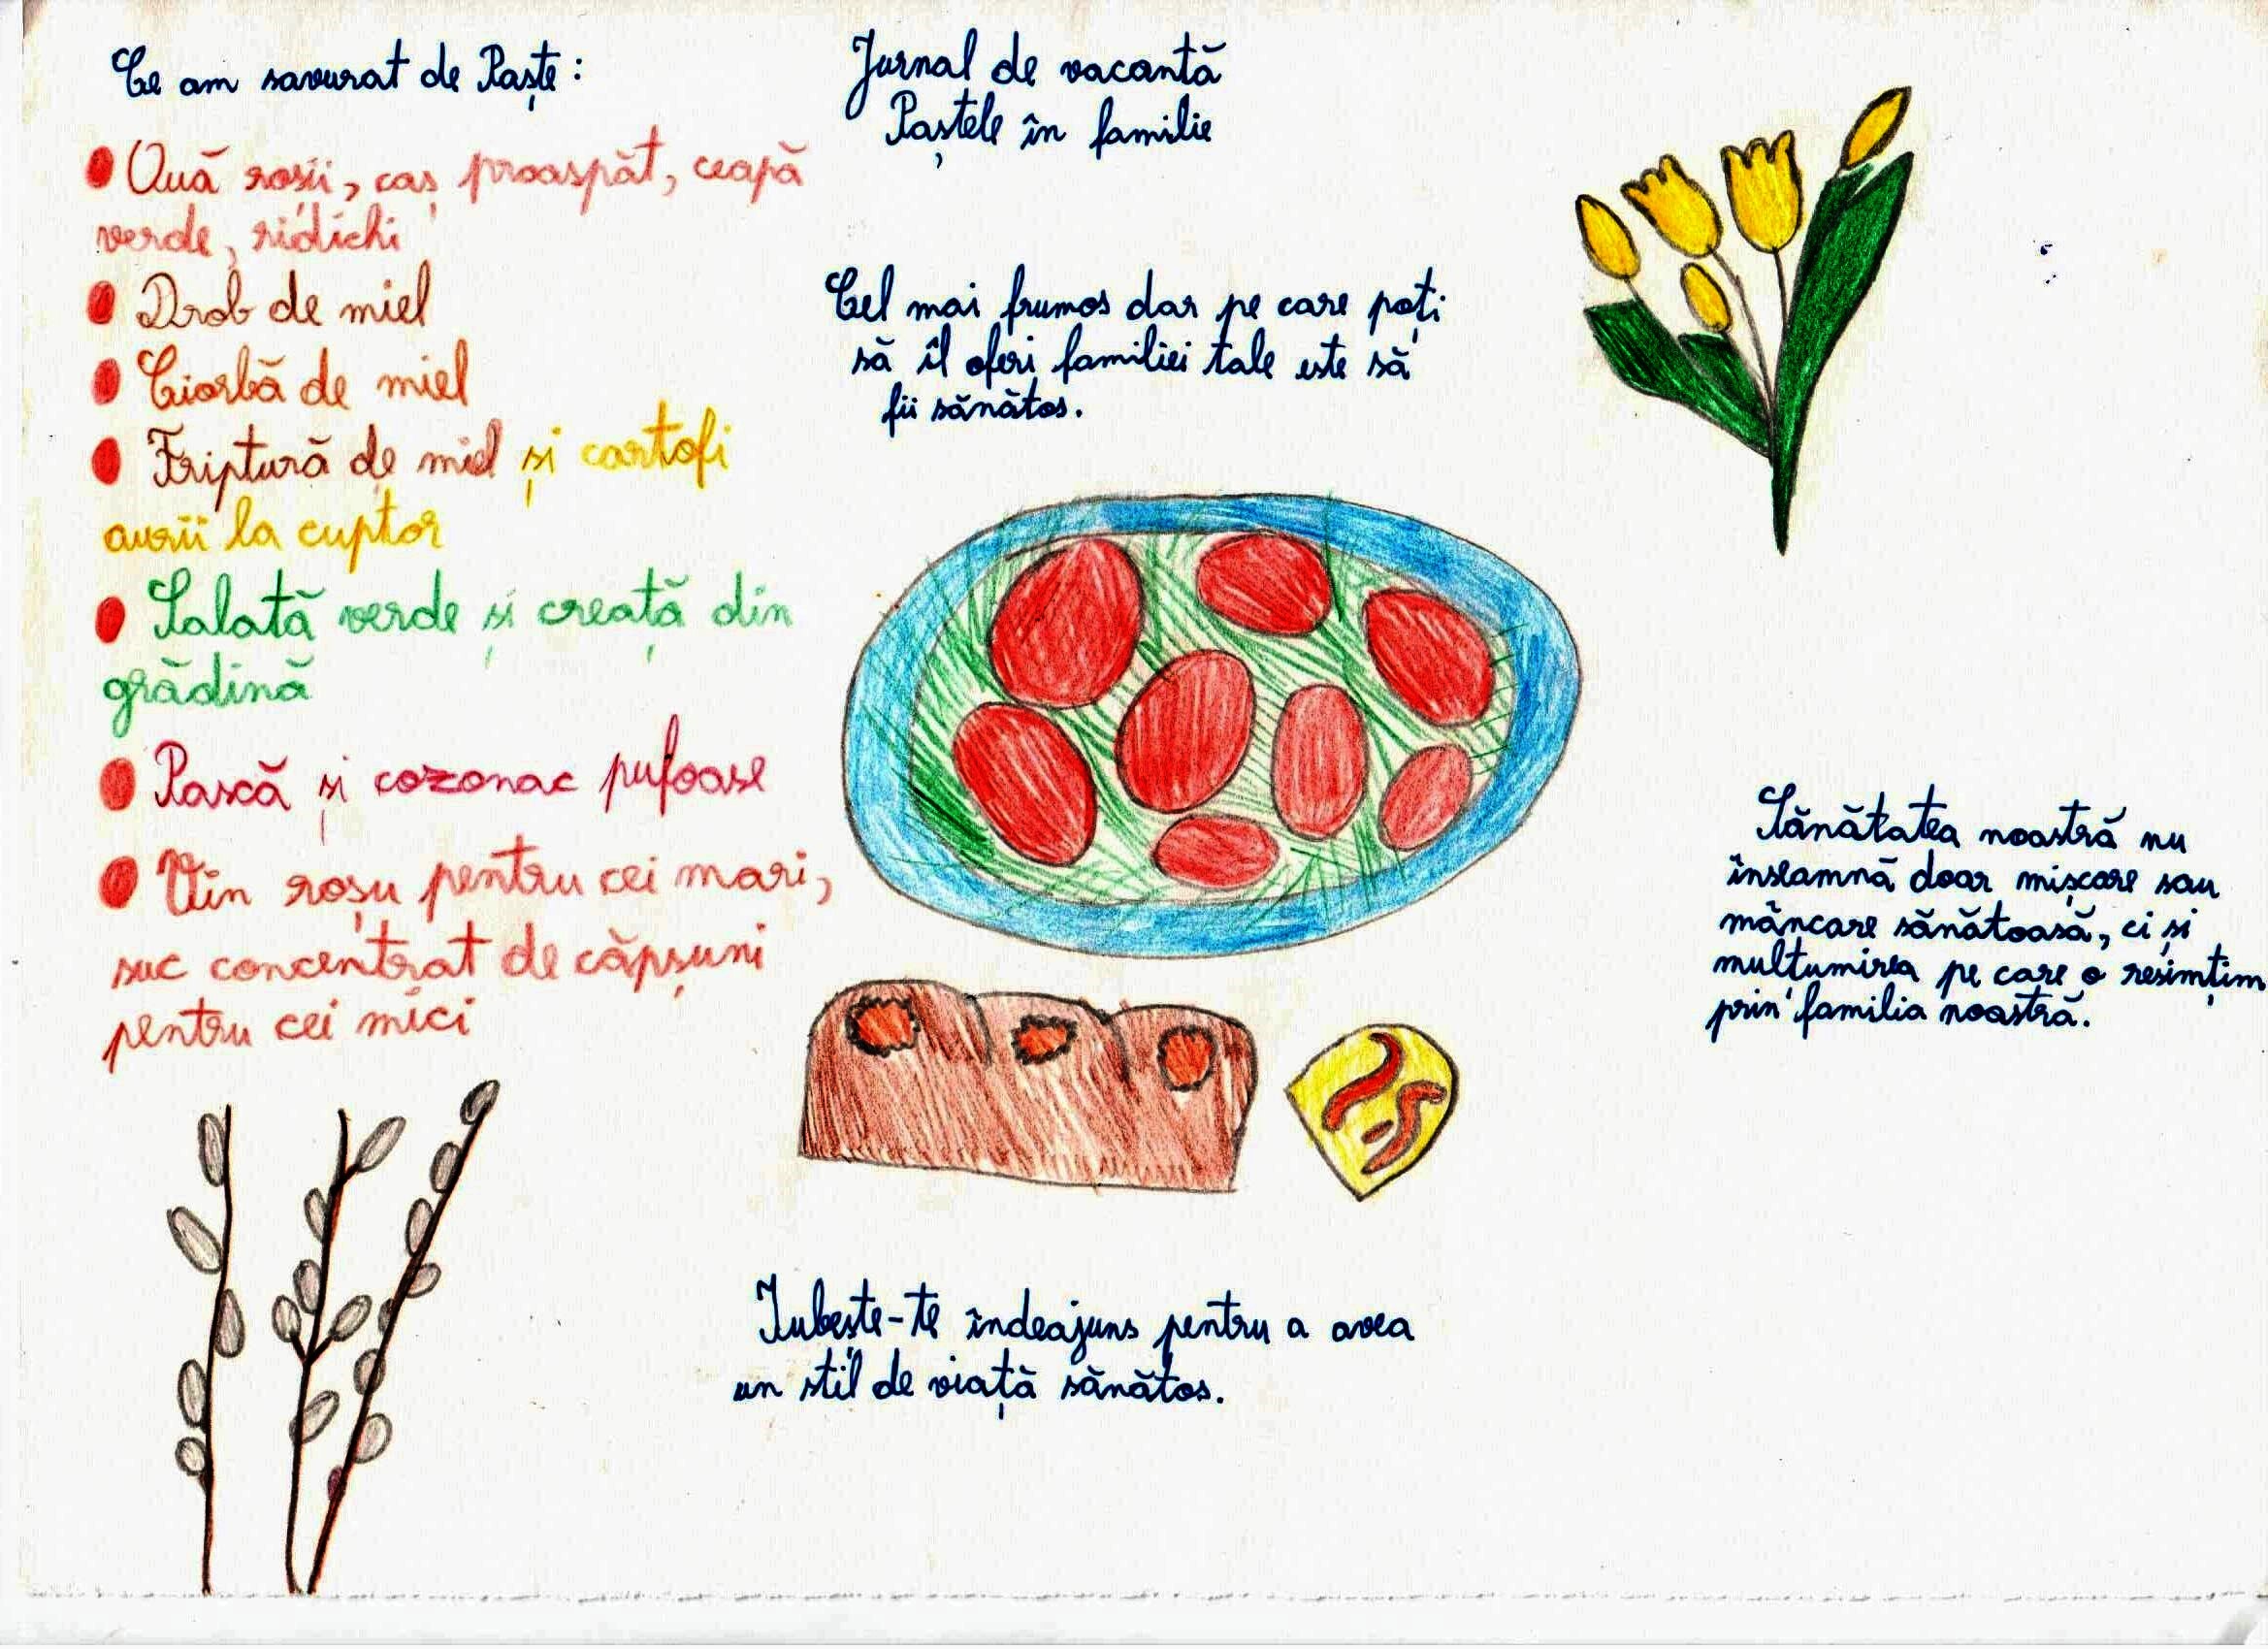 Ce am savurat de Paște:
Ouă roșii, caș proaspăt, ceapă
verde, ridichi
Drob de miel
Ciorbă de miel
Friptură de miel și cartofi
aurii la cuptor
Salată verde și creață din
grădină
Pască și cozonac pufoase
Vin roșu pentru cei mari,
suc concentrat de căpșuni
pentru cei mici
Jurnal de vacantă
Paștele în familie
Cel mai frumos dar pe care poți
să îl oferi familiei tale este să
fii sănătos.
Sănătatea noastră nu
înseamnă doar mișcare sau
mâncare sănătoasă, ci și
mulțumirea pe care o resimțim
prin familia noastră.
Iubește-te îndeajuns pentru a avea
un stil de viață sănătos.